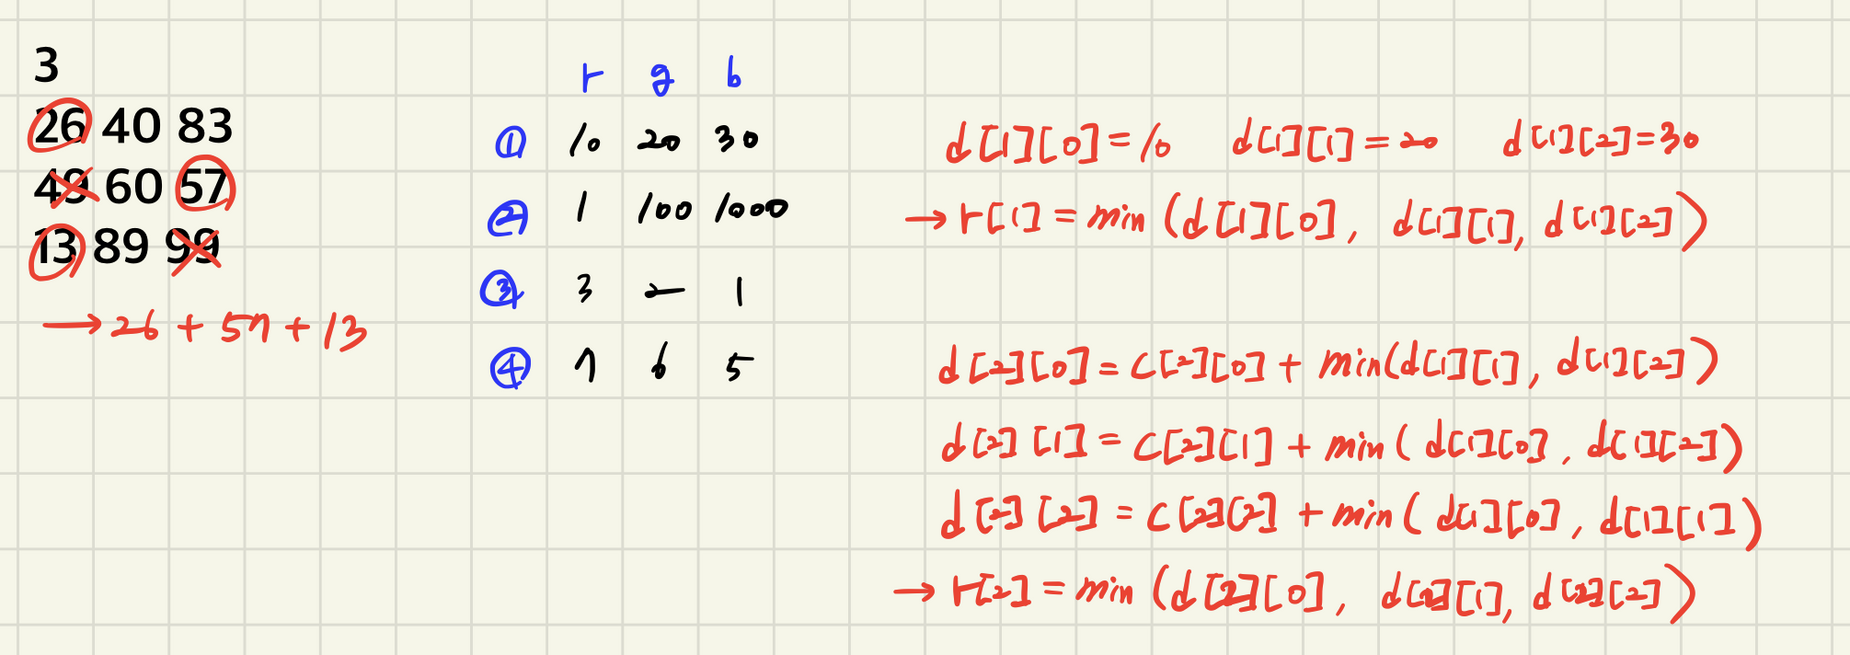 3
26 40 83
49 60 57
13 89 99
→ 26 + 57 + 13
r g b
① 10 20 30
② 1 100 1000
③ 3 2 1
④ 7 6 5
d[1][0]=10 d[1][1]=20 d[1][2]=30
→ r[1] = min (d[1][0], d[1][1], d[1][2])
d[2][0] = c[2][0] + min(d[1][1], d[1][2])
d[2][1] = c[2][1] + min(d[1][0], d[1][2])
d[2][2] = c[2][2] + min(d[1][0], d[1][1])
→ r[2] = min (d[2][0], d[2][1], d[2][2])